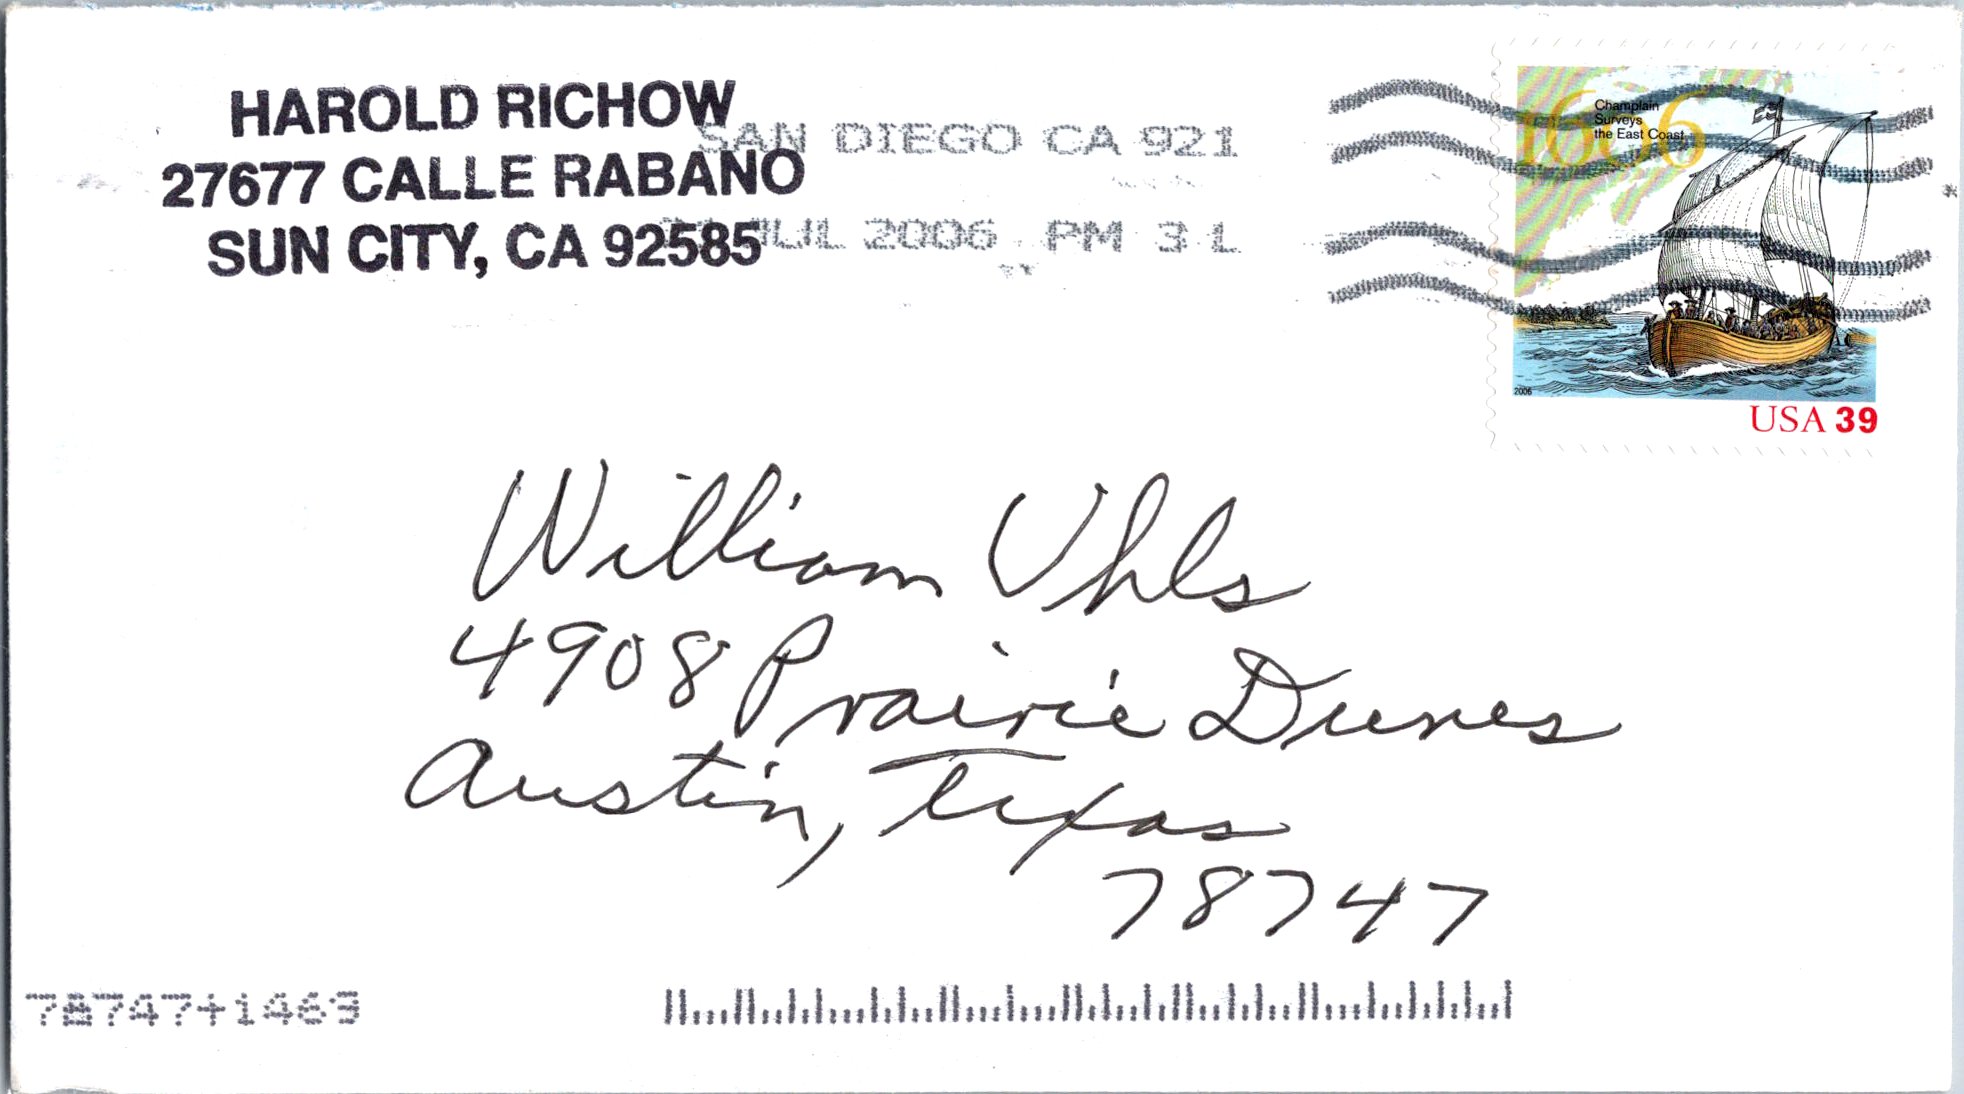 HAROLD RICHOW
27677 CALLE RABANO
SUN CITY, CA 92585
SAN DIEGO CA 921
JUL 2006 PM 3 L
1606
Champlain
Surveys
the East Coast
2006
USA 39
William Uhls
4908 Prairie Dunes
Austin, Texas
78747
78747+1463